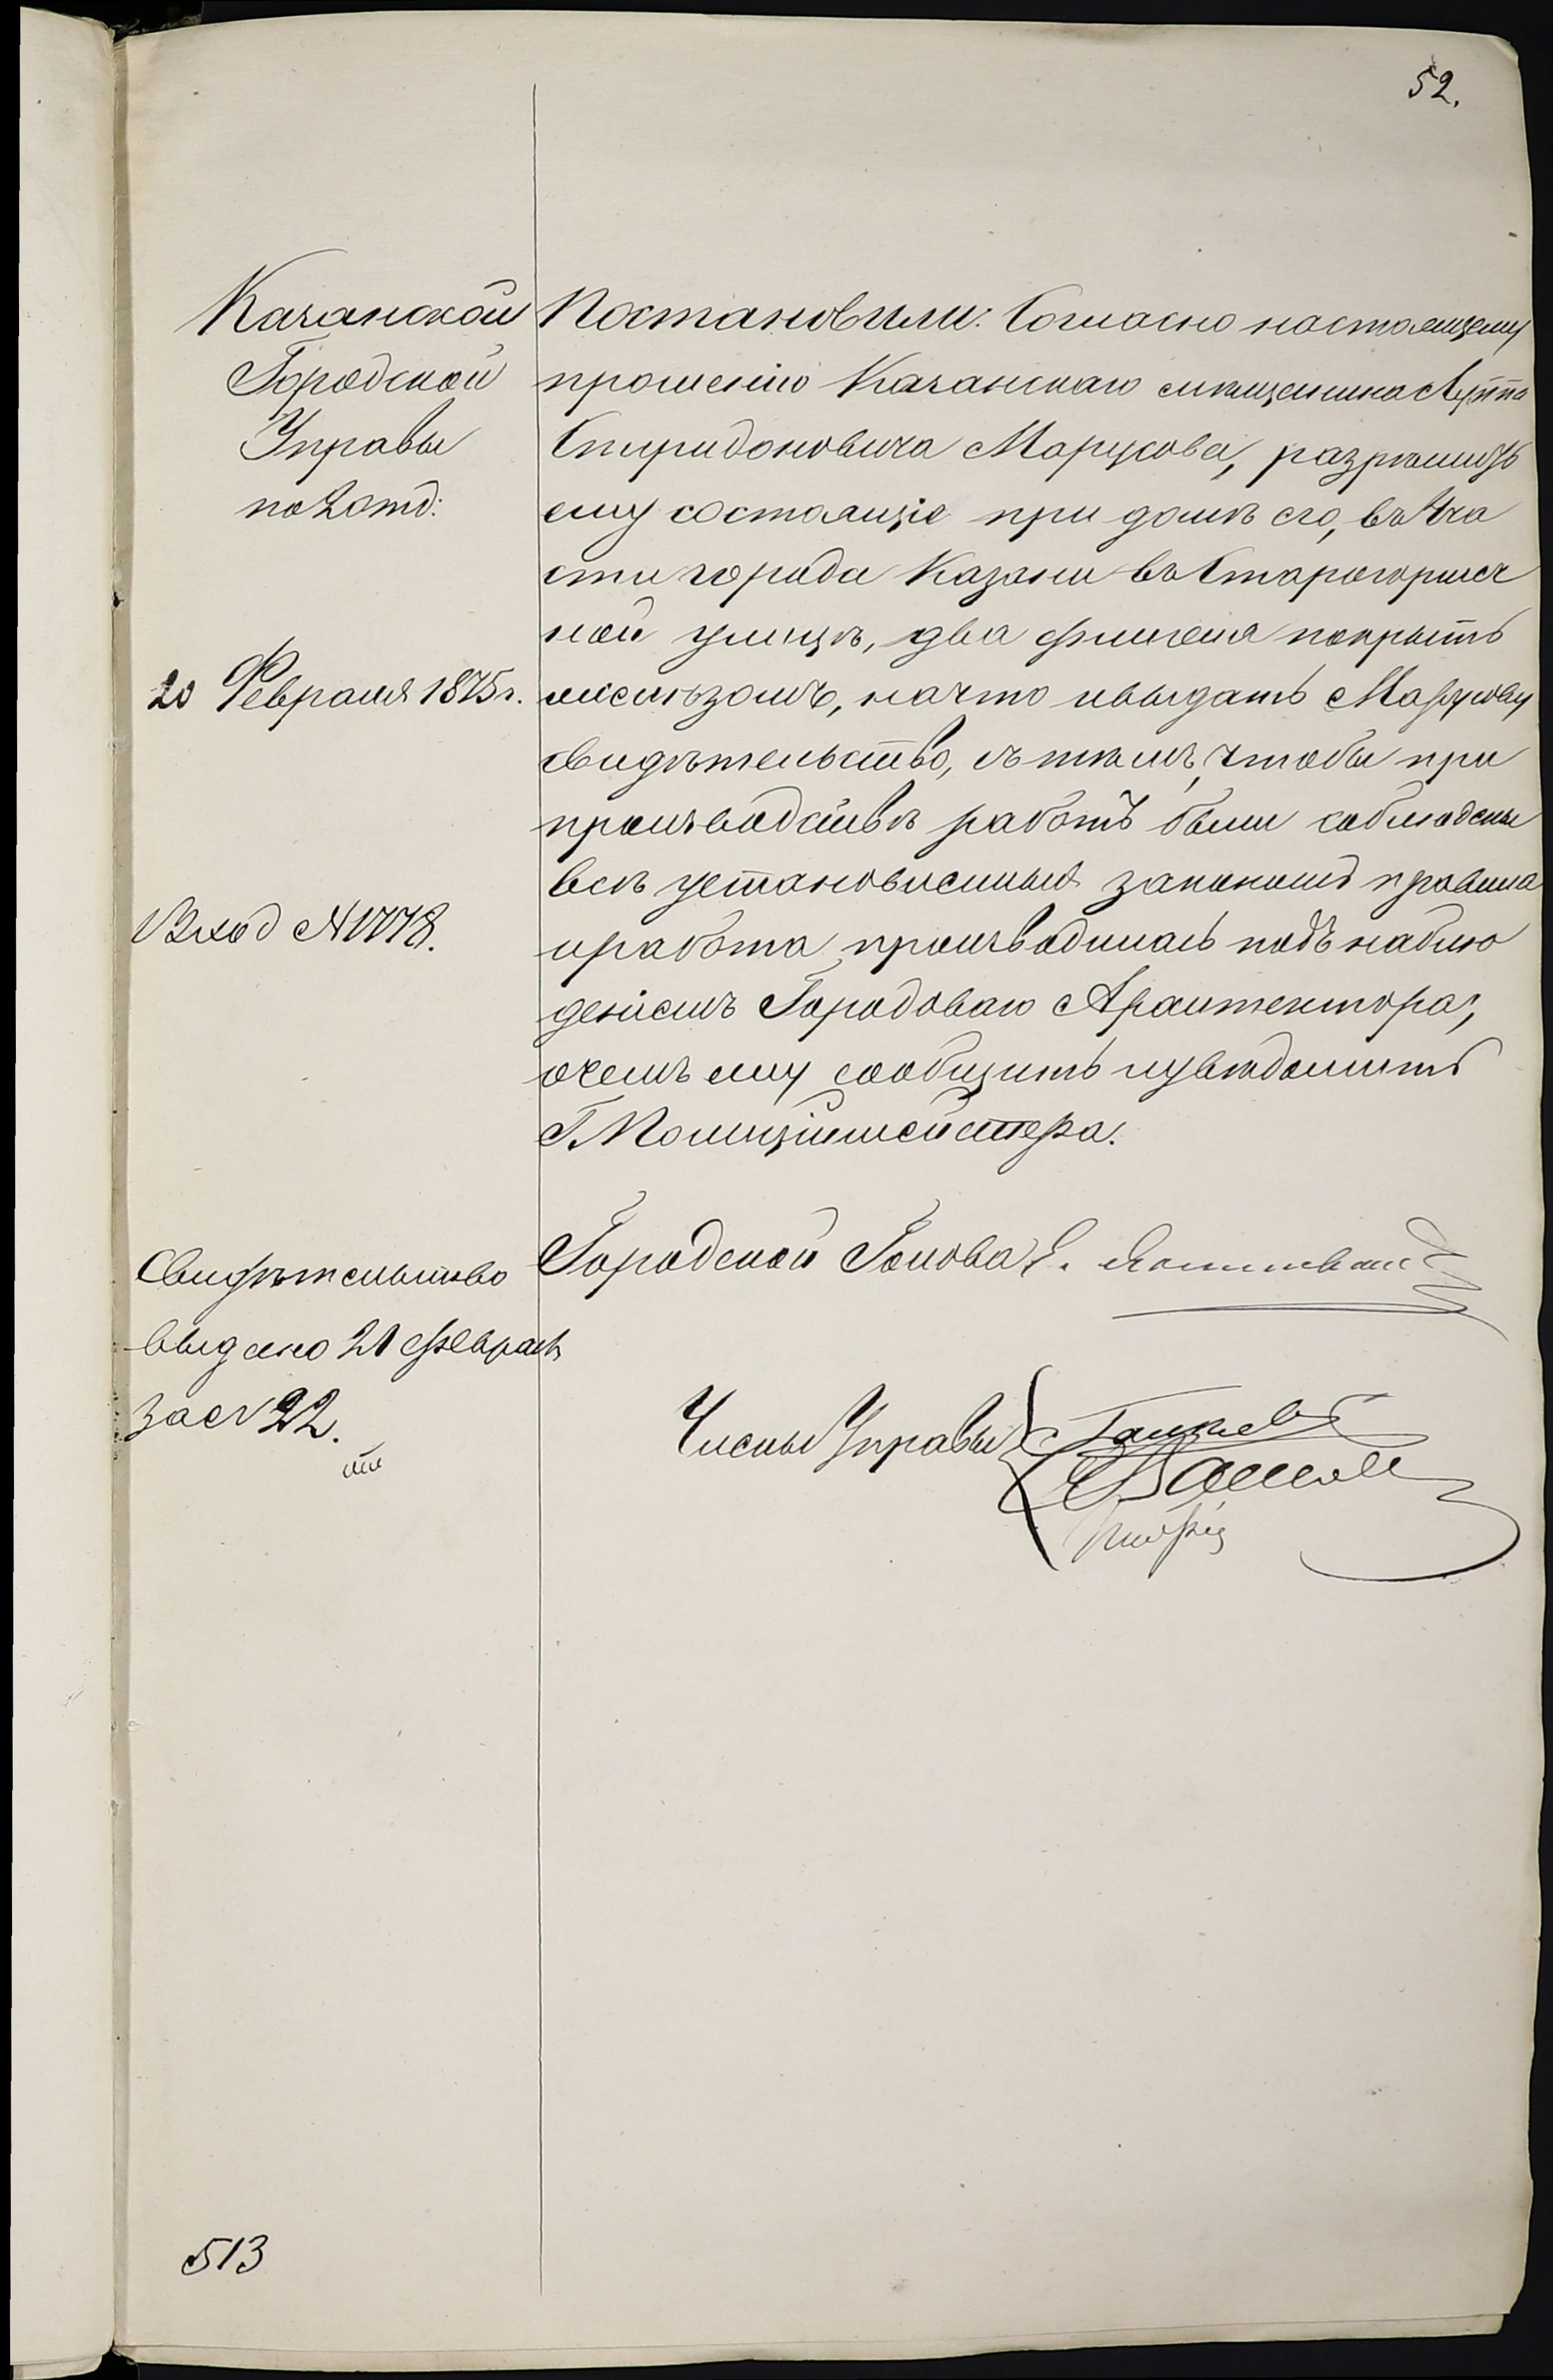 52.
Казанской
Городской
Управы
по 2 отд:
20 Февраля 1875 г.
Вход № 1778.
Свидѣтельство
выдано 21 февраля
за № 22.
Постановили: Согласно настоящему
прошенію Казанскаго мѣщанина Луппа
Спиридоновича Марусова, разрѣшить
ему состоящіе при домѣ его, въ 4 ча
сти города Казани въ Старогоршеч
ной улицѣ, два флигеля покрыть
желѣзомъ, на что и выдать Марусову
свидѣтельство, съ тѣмъ, чтобы при
производствѣ работъ были соблюдены
всѣ установленныя закономъ правила
и работа производилась подъ наблю
деніемъ Городоваго Архитектора,
о чемъ ему сообщить и увѣдомить
Г. Полиціймейстера.
Городской Голова Е.
Члены Управы
513